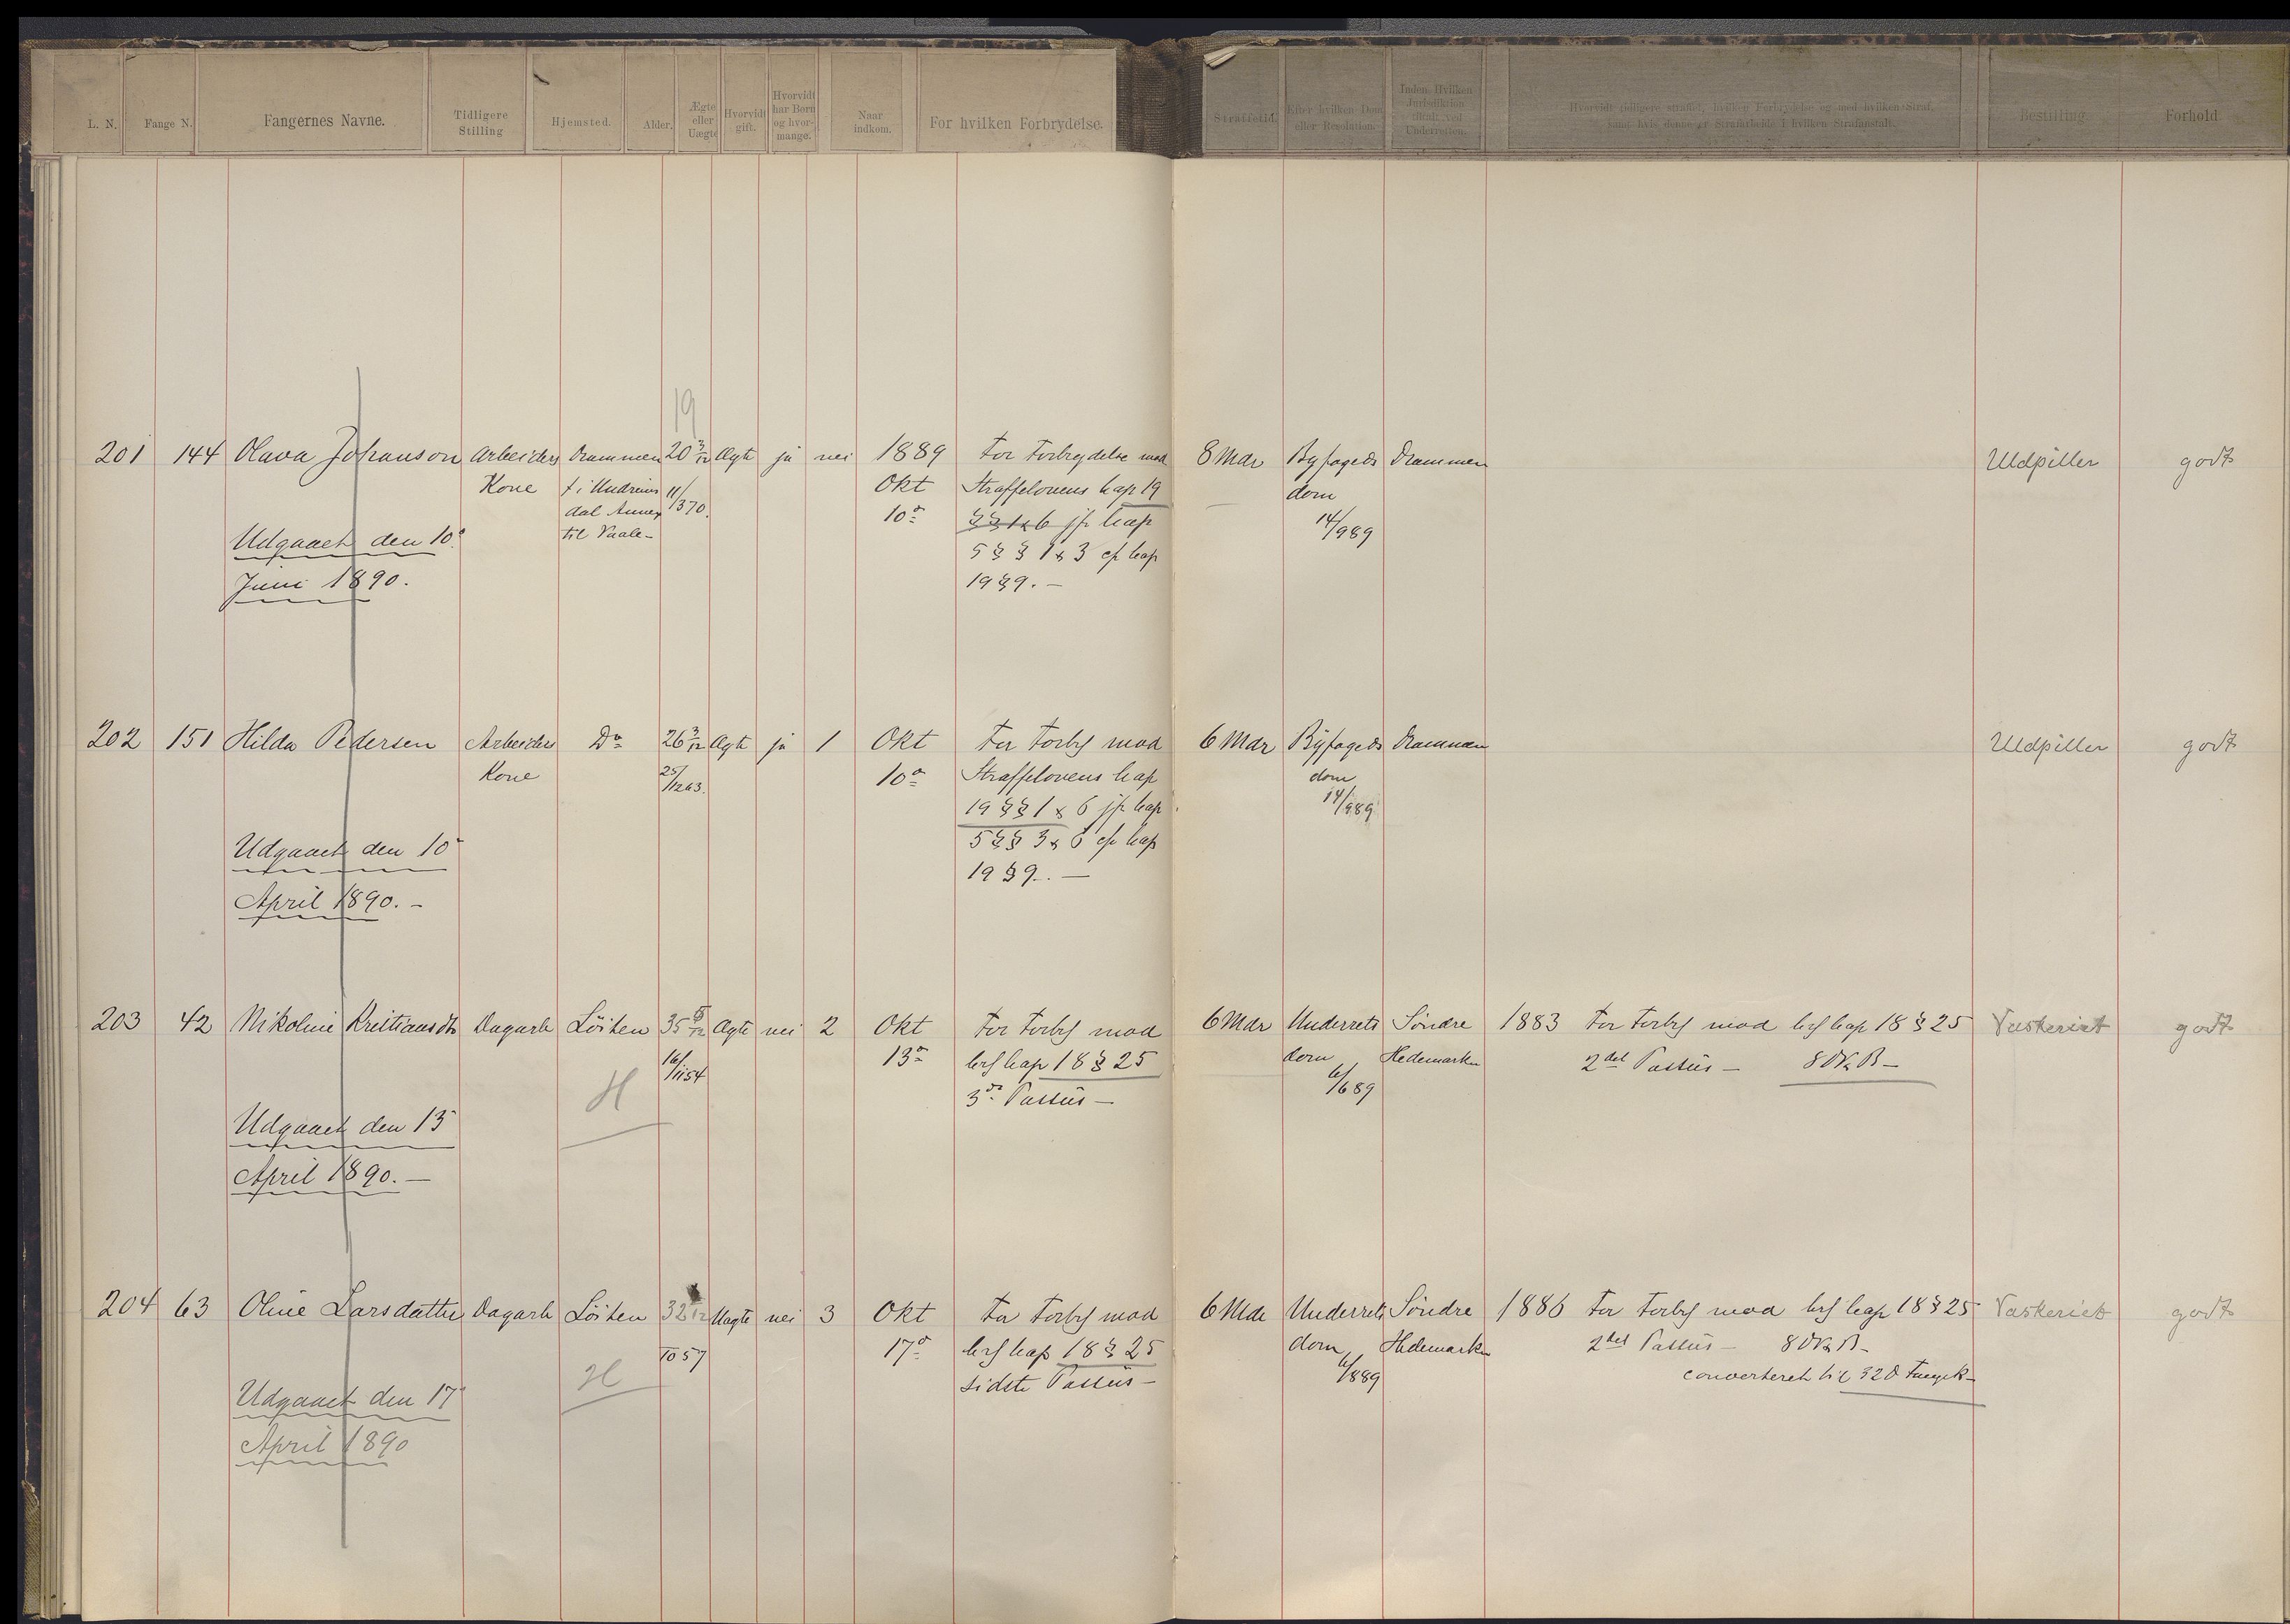 L. N.
Fange N.
Fangernes Navne.
Tidligere
Stilling
Hjemsted.
Alder.
Ægte
eller
Uægte
Hvorvidt
gift.
Hvorvidt
har Børn
og hvor-
mange.
Naar
indkom.
For hvilken Forbrydelse.
Straffetid.
Efter hvilken Dom
eller Resolution.
Inden Hvilken
Jurisdiktion
tiltalt ved
Underretten.
Hvorvidt tidligere straffet, hvilken Forbrydelse og med hvilken Straf,
samt hvis denne er Strafarbeide i hvilken Strafanstalt.
Bestilling.
Forhold.
19
201 144 Olava Johanson Arbeiders Drammen 20 3/12 Ægte ja nei 1889 for Forbrydelse mod 8 Mdr Byfogeds Drammen Uldpiller godt
Kone f i Undreims 11/3 70. Okt Straffelovens kap 19 dom
dal Annex 10de §§ 1 & 6 jfr kap 14/9 89
til Vaale-
5 §§ 1 & 3 cf kap
19 § 9. -
Udgaaet den 10de
Juni 1890.
202 151 Hilda Pedersen Arbeiders Do 26 3/12 Ægte ja 1 Okt for Forbr mod 6 Mdr Byfogeds Drammen Uldpiller godt
Kone 25/12 63. 10de Straffelovens kap dom
19 §§ 1 & 6 jfr kap 14/9 89
5 §§ 3 & 6 cf kap
19 § 9. -
Udgaaet den 10
April 1890. -
203 42 Nikoline Kristiansdtr Dagarb Löiten 35 /12 Ægte nei 2 Okt for Forbr mod 6 Mdr Underrets Söndre 1883 for Forbr mod krf kap 18 § 25 Vaskeriet godt
16/11 54 13de krf kap 18 § 25 dom Hedemarken 2det Passus - 8 D V & B -
H 3de Passus - 6/6 89
Udgaaet den 13
April 1890. -
204 63 Oline Larsdatter Dagarb Löiten 32 /12 Uægte nei 3 Okt for Forbr mod 6 Mdr Underrets Söndre 1886 for Forbr mod krf kap 18 § 25 Vaskeriet godt
10 57 17de krf kap 18 § 25 dom Hedemarken 2det Passus - 8 D V & B -
H sidste Passus - 6/8 89 converteret til 32 D Fængsl-
Udgaaet den 17
April 1890